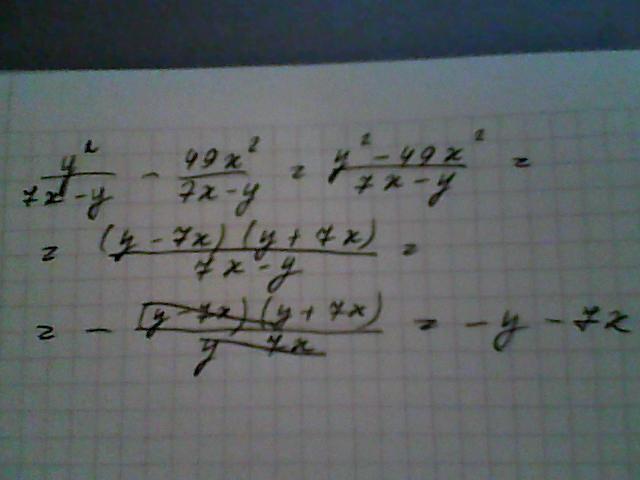 y²/(7x-y) - 49x²/(7x-y) = (y²-49x²)/(7x-y) =
= (y-7x)(y+7x)/(7x-y) =
= - (y-7x)(y+7x)/(y-7x) = -y-7x